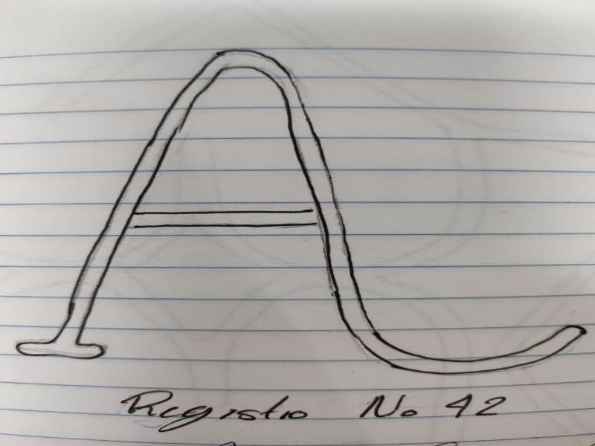 A
Registro No 42